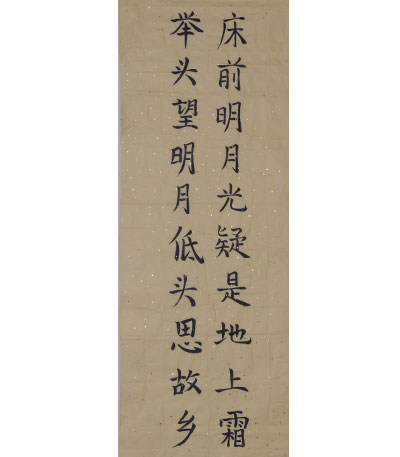 床前明月光疑是地上霜
举头望明月低头思故乡